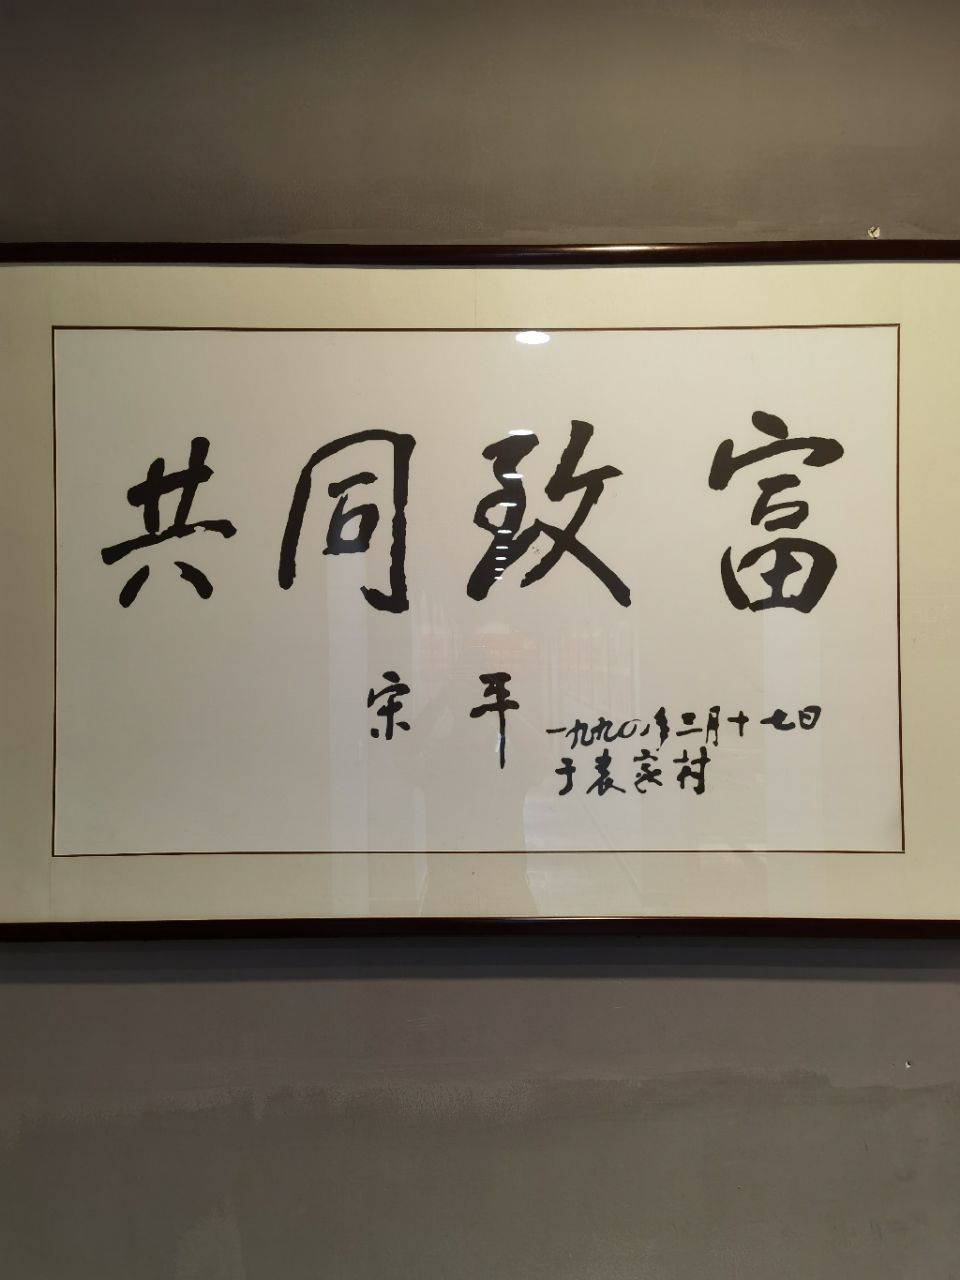 共同致富
宋平
一九九〇年三月十七日
于袁家村